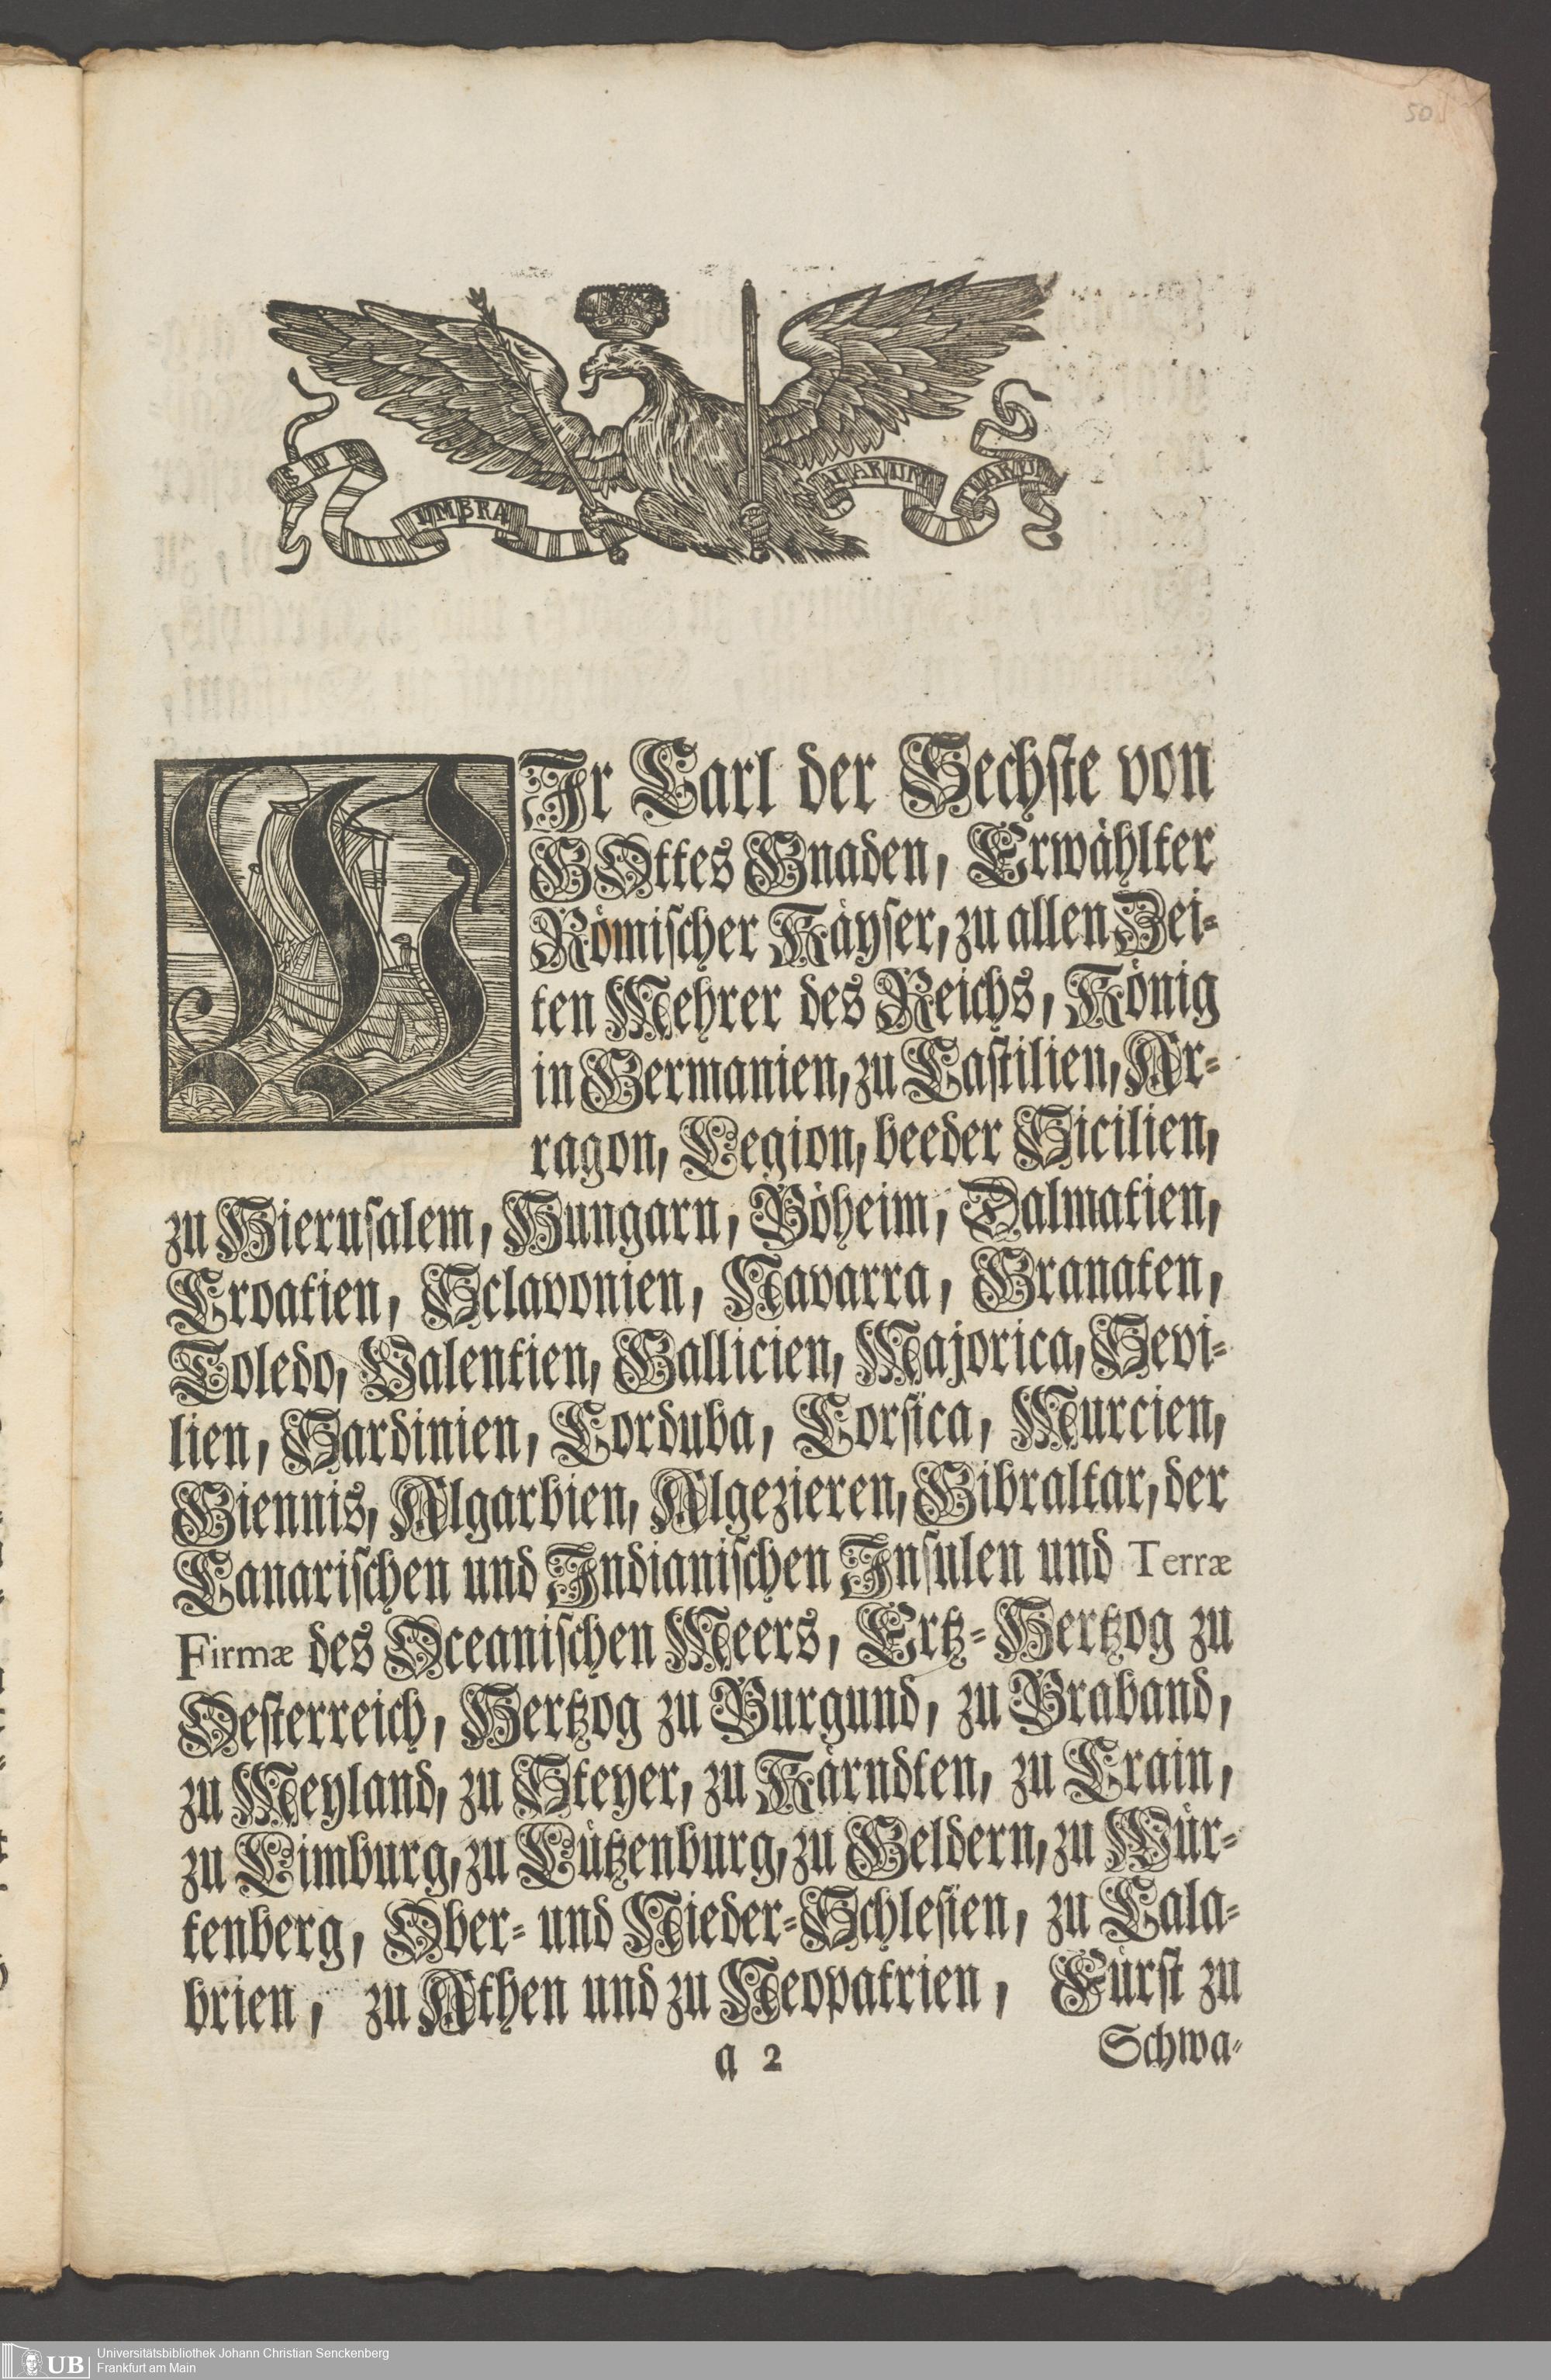 50
SUB
UMBRA
ALARUM
TUARUM
WIr Carl der Sechste von
GOttes Gnaden, Erwählter
Römischer Käyser, zu allen Zei-
ten Mehrer des Reichs, König
in Germanien, zu Castilien, Ar-
ragon, Legion, beeder Sicilien,
zu Hierusalem, Hungarn, Böheim, Dalmatien,
Croatien, Sclavonien, Navarra, Granaten,
Toledo, Valentien, Gallicien, Majorica, Sevi-
lien, Sardinien, Corduba, Corsica, Murcien,
Giennis, Algarbien, Algezieren, Gibraltar, der
Canarischen und Indianischen Insulen und Terræ
Firmæ des Oceanischen Meers, Ertz-Hertzog zu
Oesterreich, Hertzog zu Burgund, zu Braband,
zu Meyland, zu Steyer, zu Kärndten, zu Crain,
zu Limburg, zu Lützenburg, zu Geldern, zu Wür-
tenberg, Ober- und Nieder-Schlesien, zu Cala-
brien, zu Athen und zu Neopatrien, Fürst zu
a 2
Schwa-
UB
Universitätsbibliothek Johann Christian Senckenberg
Frankfurt am Main